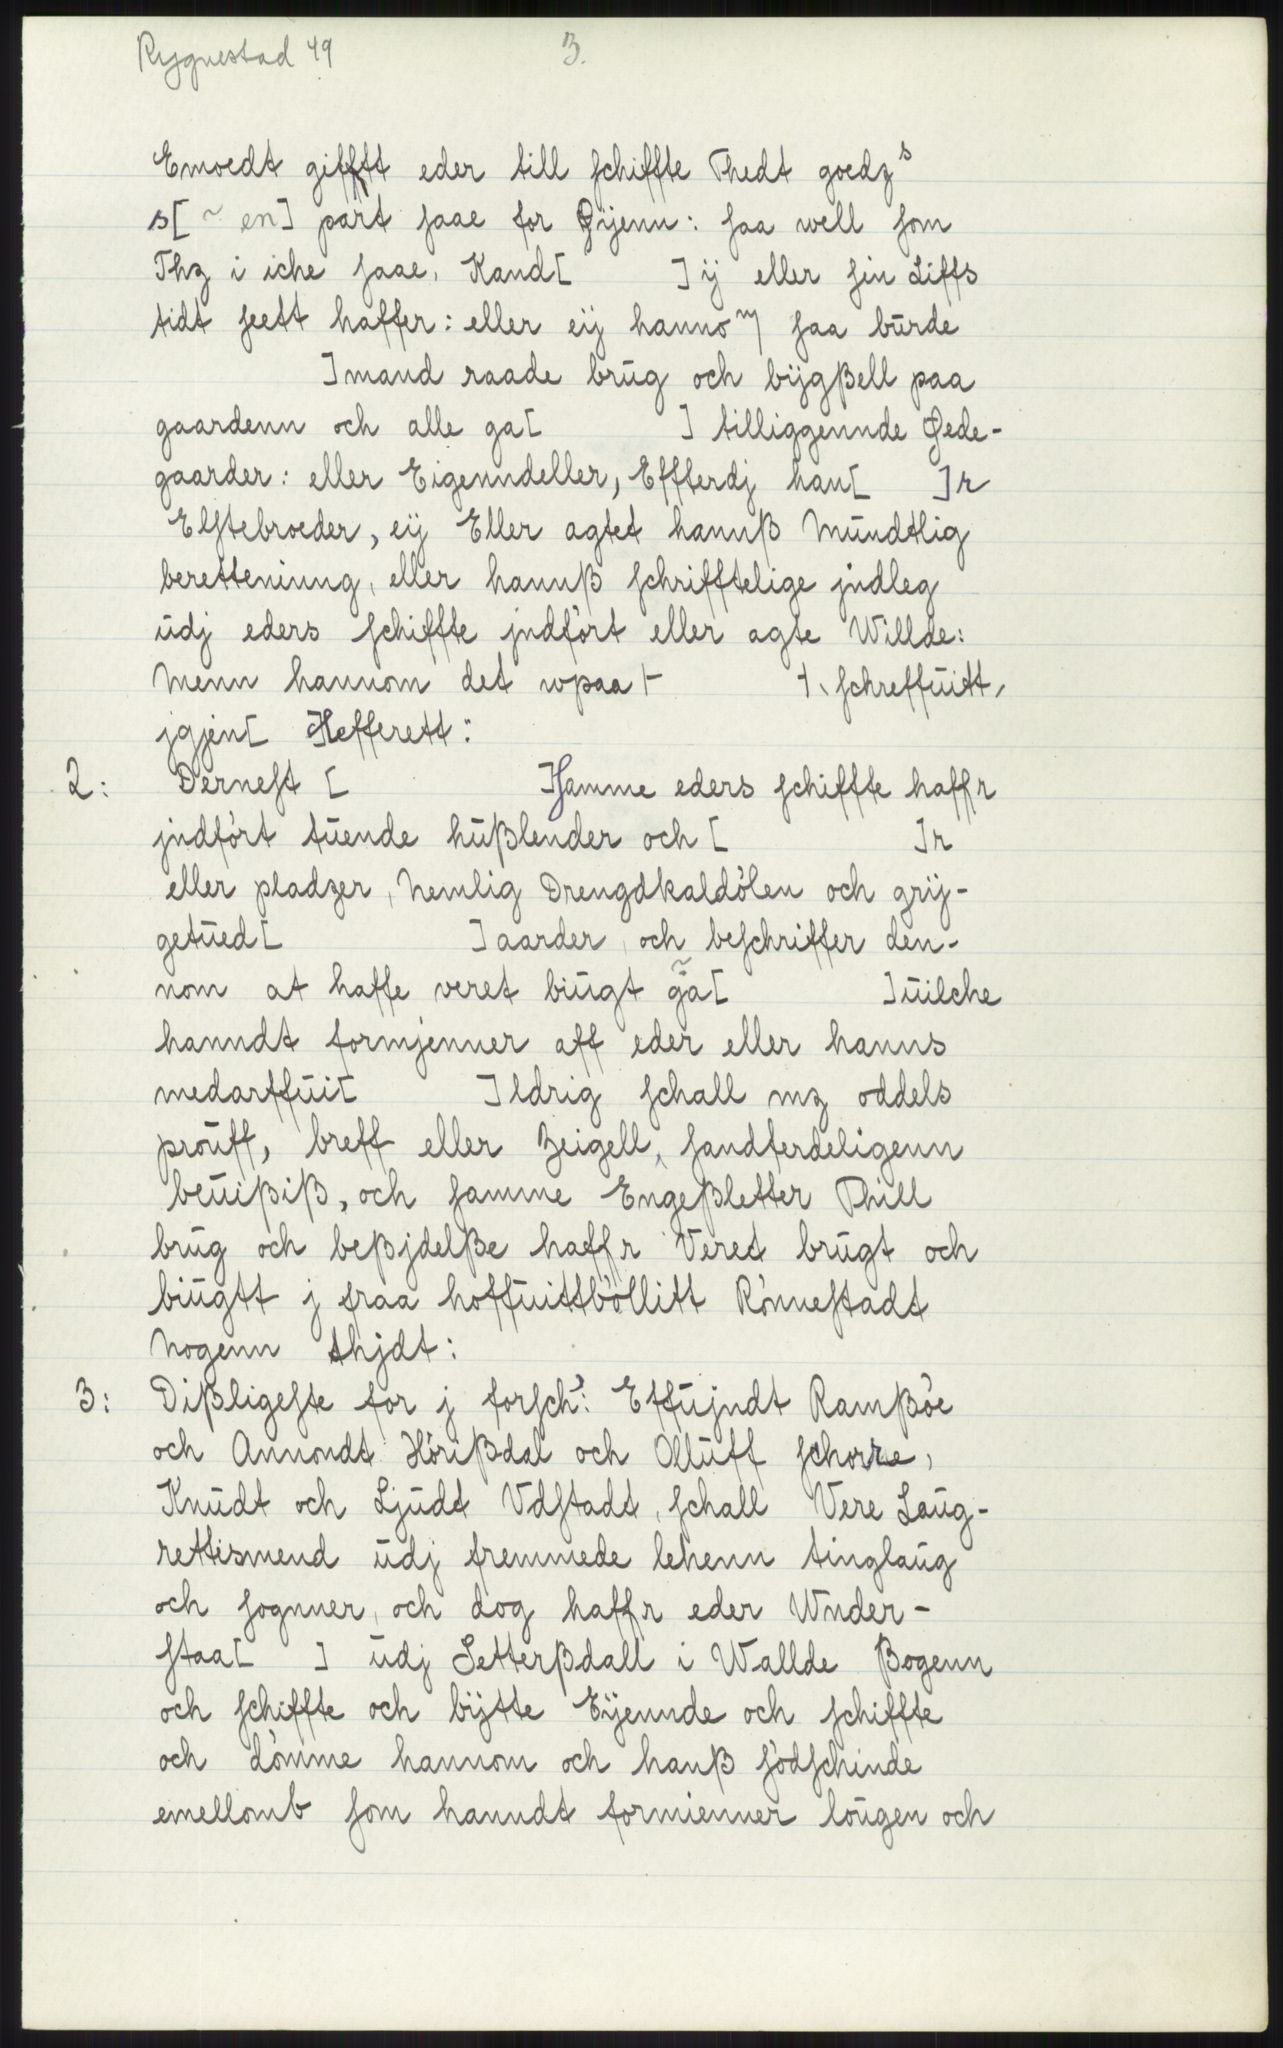 Rygnestad 49 3.
Emoedt gifftt eder till schiffte Thedt goedz s
s[ ~ en] part faae for Øijenn: saa well som
Thz i iche faae, Kand[ ] ij eller sin Liffs
tidt seett haffer: eller eij hanno m saa bürde
]mand raade brüg och bijgßell paa
gaardenn och alle ga[ ] tilliggennde Øede-
gaarder: eller Eigenndeller, Effterdj han[ ]r
Elstebroeder, eij Eller agtet hannß Mündtlig
beretteniung, eller hannß schrifftelige jndleg
üdj eders schiffte jndfört eller agte Willde:
Menn hannom det wpaa⊢ ⊣, schreffüitt,
jgjen[ ]Hefferett:
2: Dernest [ ]samme eders schiffte haffr
jndfört tüende hüßlender och [ ]r
eller pladzer, Nemlig Drengdkaldölen och grij-
getüed[ ]aarder, och beschriffer den-
nom at haffe veret biügt gã[ ]üilche
hanndt formjenner aff eder eller hanns
medarffüi[ ]ldrig schall mz oddels
proüff, breff eller Zeigell, sandferdeligenn
beüißiß, och samme Engeßletter Thill
brüg och beßjdelße haffr Veret brügt och
biügtt j fraa hoffüittböllitt Rönnestadt
Nogenn thjdt:
3: Dißligeste for j forsch: Effüjndt Ramßöe
och Annondt Hörißdal och Ollüff schorre,
Knüdt och Ljüdt Vdstadt, schall Vere Laüg-
rettismend üdj fremmede lehenn tinglaüg
och sognner, och dog haffr eder Wnder-
staa[ ] üdj Setterßdall i Wallde ßogenn
och schiffte och bijtte Eijennde och schiffte
och dömme hannom och hanß södschinde
emellomb som hanndt formienner loügen och